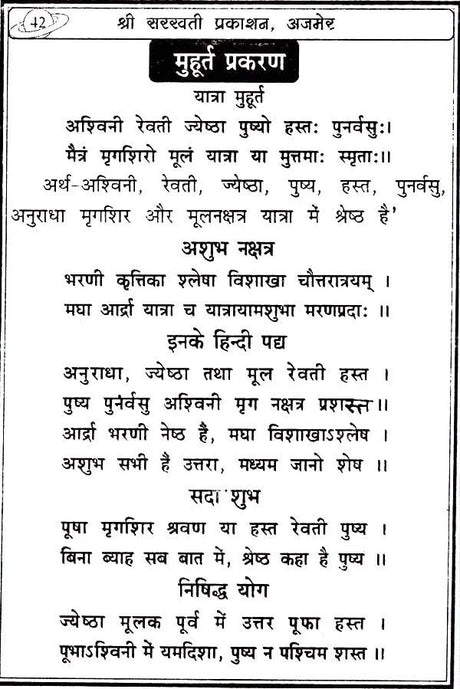 42
श्री सरस्वती प्रकाशन, अजमेर
मुहूर्त प्रकरण
यात्रा मुहूर्त
अश्विनी रेवती ज्येष्ठा पुष्यो हस्तः पुनर्वसुः।
मैत्रं मृगशिरो मूलं यात्रा या मुत्तमाः स्मृताः।।
अर्थ-अश्विनी, रेवती, ज्येष्ठा, पुष्य, हस्त, पुनर्वसु,
अनुराधा मृगशिर और मूलनक्षत्र यात्रा में श्रेष्ठ है'
अशुभ नक्षत्र
भरणी कृत्तिका श्लेषा विशाखा चौत्तरात्रयम् ।
मघा आर्द्रा यात्रा च यात्रायामशुभा मरणप्रदाः ।।
इनके हिन्दी पद्य
अनुराधा, ज्येष्ठा तथा मूल रेवती हस्त ।
पुष्य पुर्नवसु अश्विनी मृग नक्षत्र प्रशस्त।।
आर्द्रा भरणी नेष्ठ हैं, मघा विशाखाऽश्लेष ।
अशुभ सभी हैं उत्तरा, मध्यम जानो शेष ।।
सदा शुभ
पूषा मृगशिर श्रवण या हस्त रेवती पुष्य ।
बिना ब्याह सब बात में, श्रेष्ठ कहा है पुष्य ।।
निषिद्ध योग
ज्येष्ठा मूलक पूर्व में उत्तर पूफा हस्त ।
पूभाऽश्विनी में यमदिशा, पुष्य न पश्चिम शस्त ।।